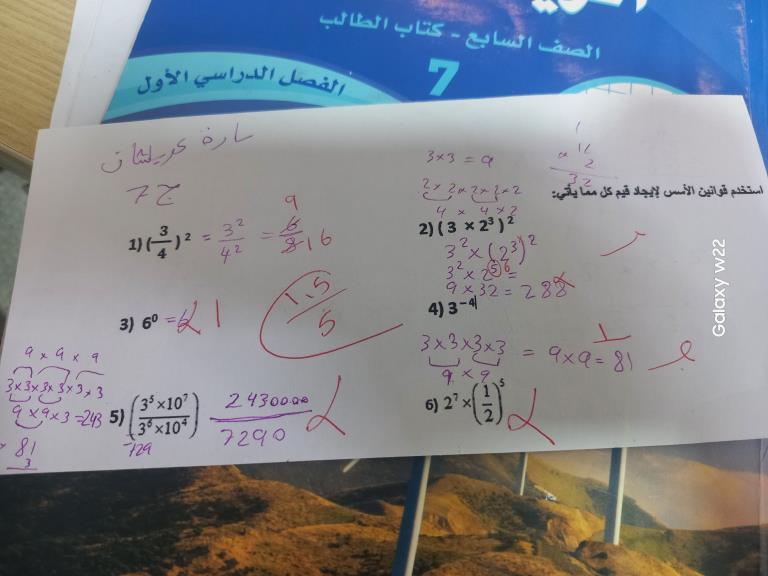 الصف السابع - كتاب الطالب
7
الفصل الدراسي الأول
سارة
7 ج
3×3 = 9
16
× 2
32
2×2×2×2×2
4 × 4 × 2
استخدم قوانين الأسس لإيجاد قيم كل مما يأتي:
1) (3/4)² = 3²/4² = 6/8 9 16
2) (3 × 2³)²
3² × (2³)²
3² × 2⁵ ⁶ =
9 × 32 = 288
3) 6⁰ = 6 1
1.5/5
4) 3⁻⁴
3×3×3×3 = 9×9 = 81
9 × 9
1
9 × 9 × 9
3×3×3×3×3×3
9×9×3=243
81
3
5) (3⁵×10⁷ / 3⁶×10⁴) 2430000 / 7290
729
6) 2⁷ × (1/2)⁵
Galaxy w22